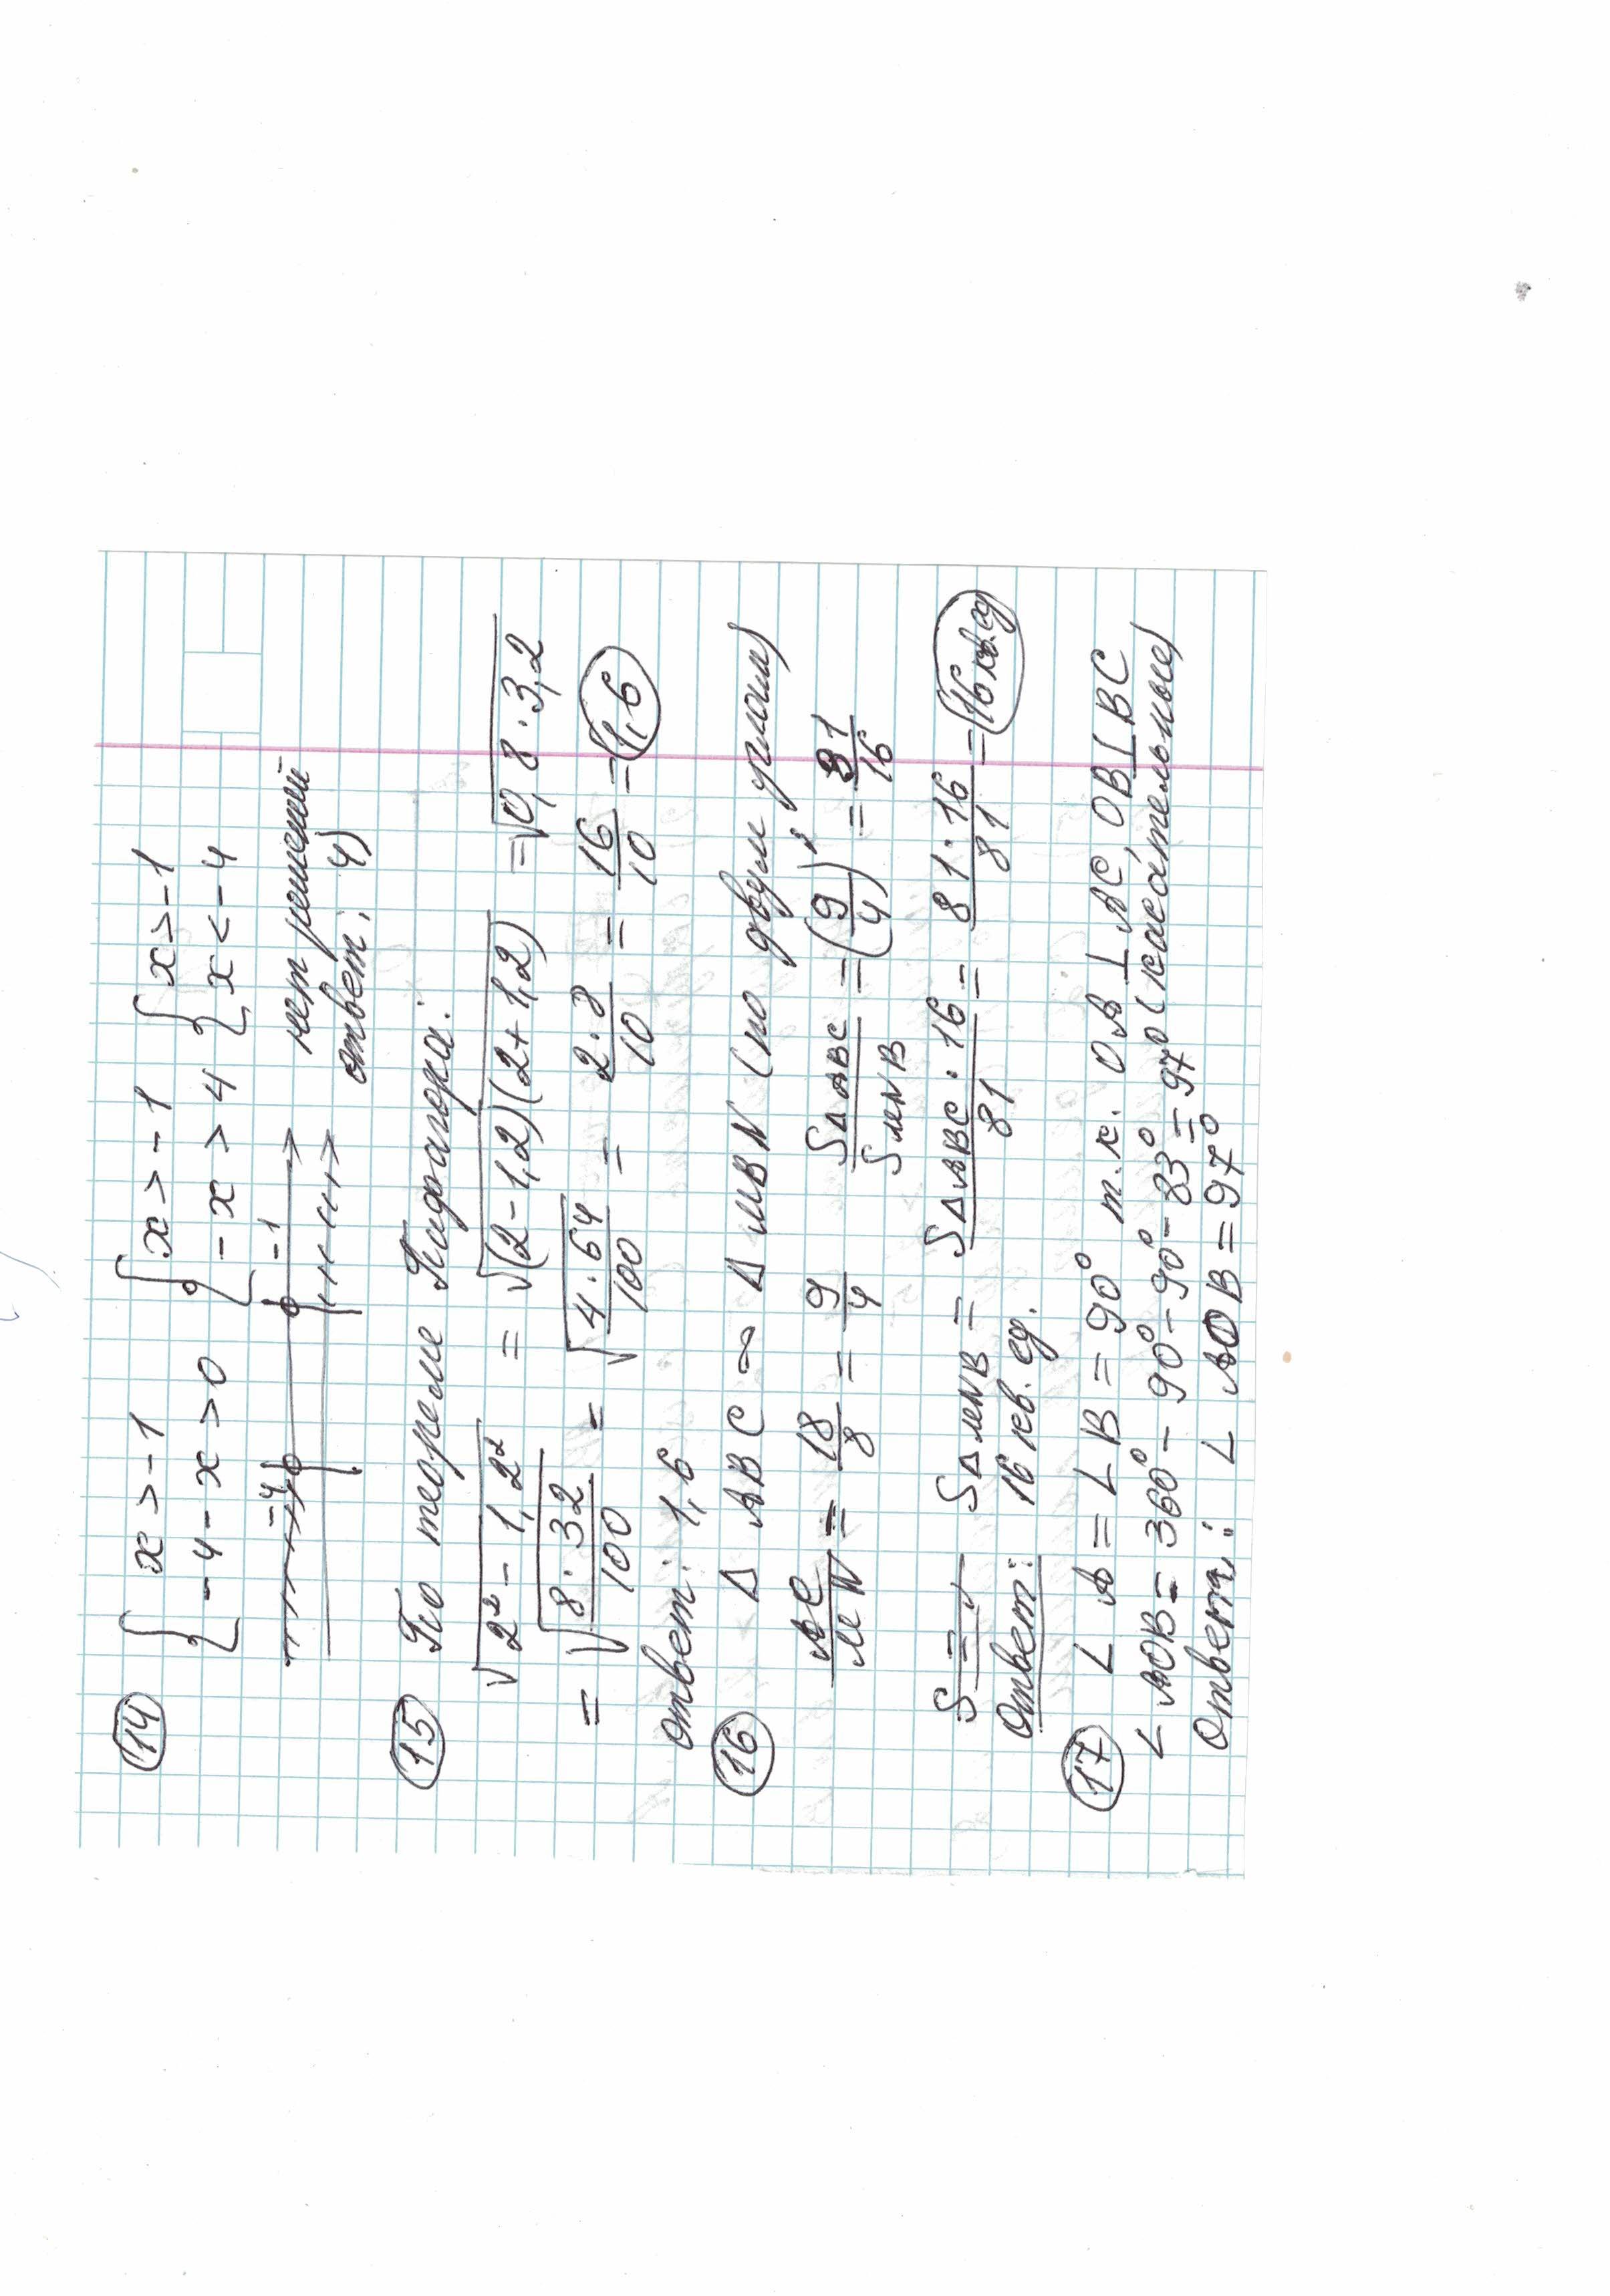 (14) { x > -1 { x > -1 { x > -1
-4 - x > 0 -x > 4 x < -4
-4 -1 нет решений
ответ: 4)
(15) По теореме Пифагора:
√(2² - 1,2²) = √((2 - 1,2)(2 + 1,2)) = √(0,8 · 3,2)
= √(8 · 32 / 100) = √(4 · 64 / 100) = 2 · 8 / 10 = 16/10 = 1,6
ответ: 1,6
(16) Δ ABC ~ Δ MBN (по двум углам)
AC/MN = 18/8 = 9/4 SΔABC / SMNB = (9/4)² = 81/16
SΔMNB = SΔABC · 16 / 81 = 81 · 16 / 81 = 16 кв. ед
Ответ: 16 кв. ед.
(17) ∠ A = ∠ B = 90° т.к. OA ⊥ AC, OB ⊥ BC
∠ AOB = 360° - 90° - 90° - 83° = 97° (касательные)
Ответ: ∠ AOB = 97°